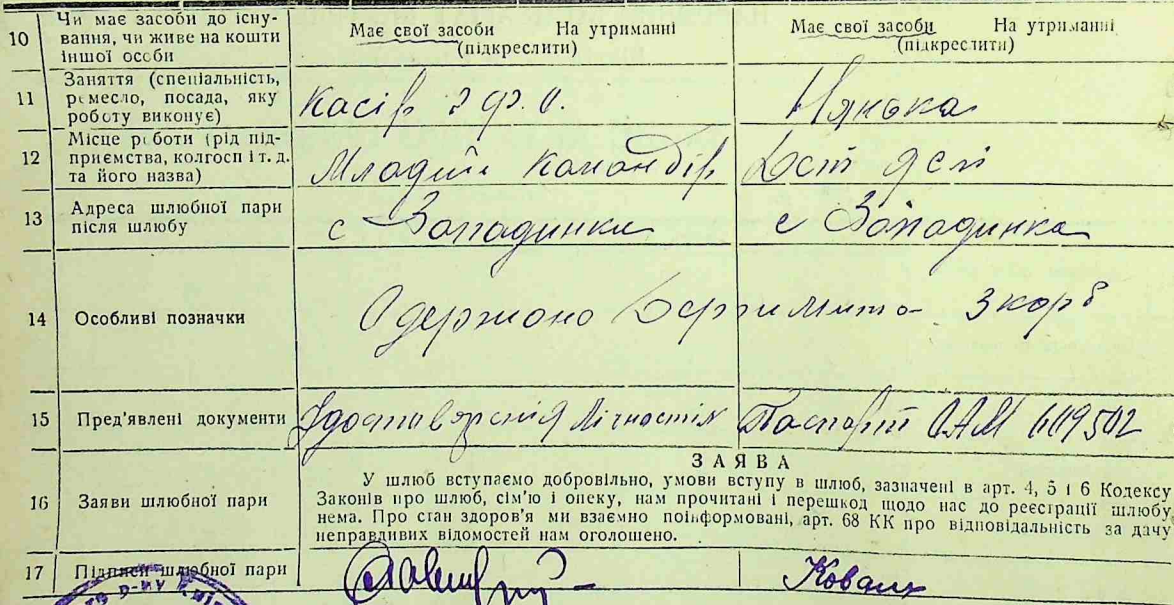 10 Чи має засоби до існу-
вання, чи живе на кошти
іншої особи
Має свої засоби На утриманні
(підкреслити)
Має свої засоби На утриманні
(підкреслити)
11 Заняття (спеціальність,
ремесло, посада, яку
роботу виконує)
Касір
Нянька
12 Місце роботи (рід під-
приємства, колгосп і т. д.
та його назва)
Младший Камандір
13 Адреса шлюбної пари
після шлюбу
с Западинка
с Западинка
14 Особливі позначки
Одержано Держмита 3 карб
15 Пред'явлені документи
Удоставєренія Лічності
Паспорт 609502
16 Заяви шлюбної пари
ЗАЯВА
У шлюб вступаємо добровільно, умови вступу в шлюб, зазначені в арт. 4, 5 і 6 Кодексу
Законів про шлюб, сім'ю і опеку, нам прочитані і перешкод щодо нас до реєстрації шлюбу
нема. Про стан здоров'я ми взаємно поінформовані, арт. 68 КК про відповідальність за дачу
неправдивих відомостей нам оголошено.
17 Підписи шлюбної пари